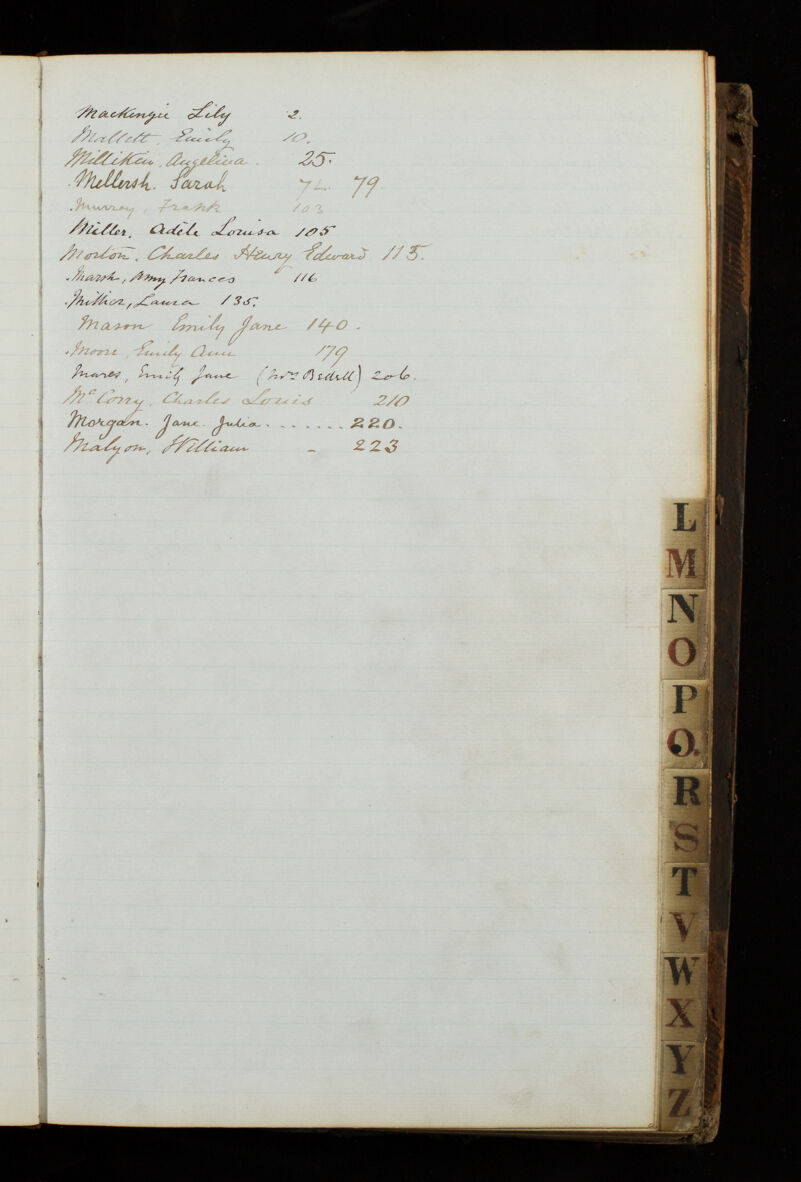 Mackenzie Lily 2.
Mallett. Emily 10.
Milliken, Angelina. 25.
Mellersh. Sarah 72. 79
Murray, Frank 103
Miller. Adèle Louisa 105
Morton. Charles Henry Edward 115.
Marsh, Amy Frances 116
Laura 135.
Mason Emily Jane 140.
Moore Emily Ann 179
Mares, Emily Jane (Mrs Bedell) 206.
McCorry, Charles Louis 210
Morgan. Jane. Julia. ...... 220.
Malyon, William - 223
L
M
N
O
P
Q.
R
S
T
V
W
X
Y
Z